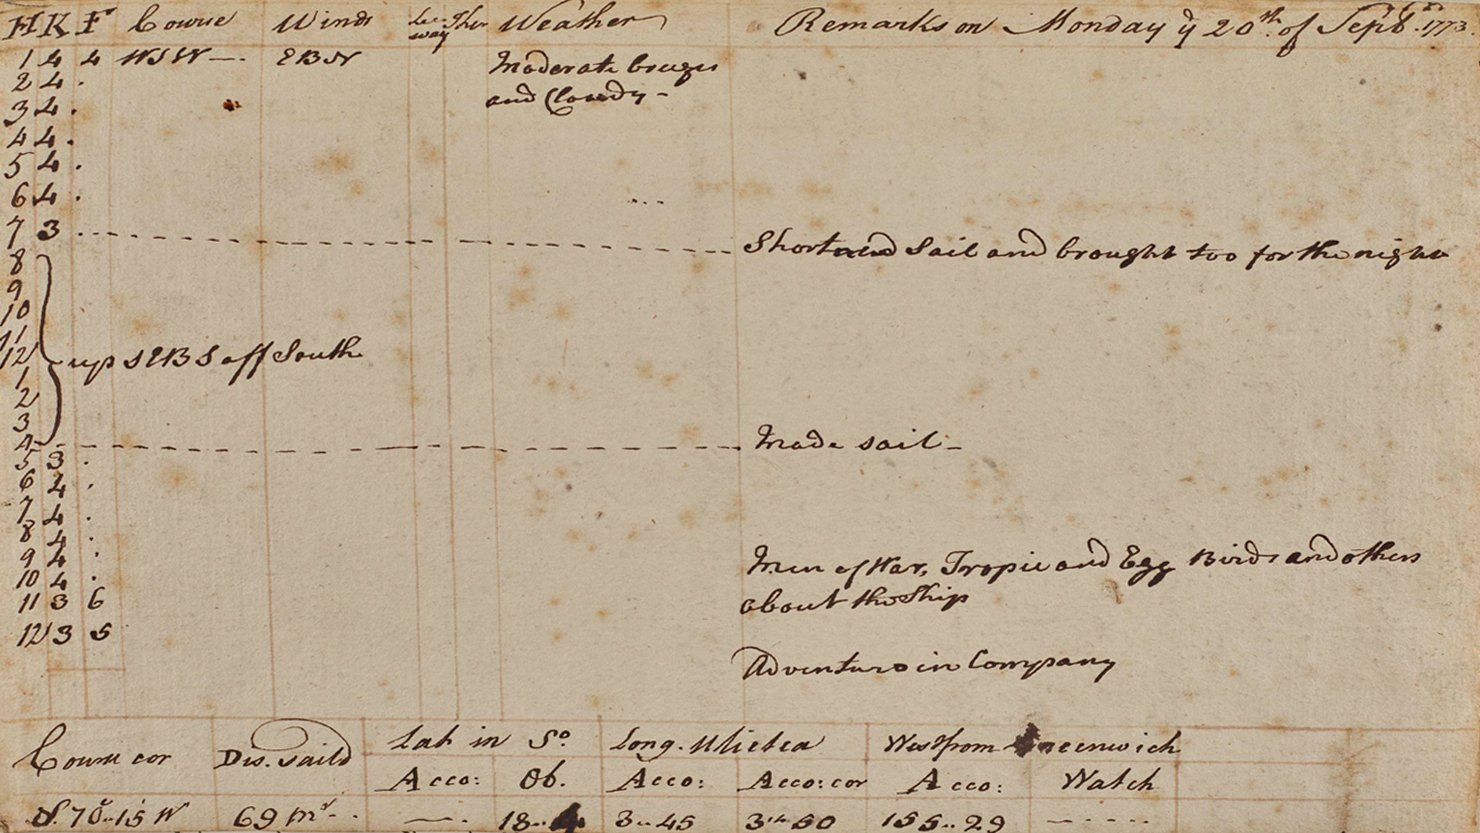 H K F Course Winds Lee way Ther Weather Remarks on Monday ye 20th of Sept. 1773.
1 4 4 WSW —. EBN Moderate breezes
2 4 . and Cloudy –
3 4 .
4 4 .
5 4 .
6 4 .
7 3 . Shortened Sail and brought too for the night
8
9
10
11
12 up SEBS off South
1
2
3
4 Made sail –
5 3 .
6 4 .
7 4 .
8 4 .
9 4 . Men of War, Tropic and Egg Birds and others
10 4 . about the Ship
11 3 6
12 3 5
Adventure in Company
Course cor Dis. Saild Lat in So. Long. Ulietea West from Greenwich
Acco: Ob. Acco: Acco: cor Acco: Watch
S. 70..15 W 69 Ms. — . 18..4 3..45 3..50 155..29 – . . . . .